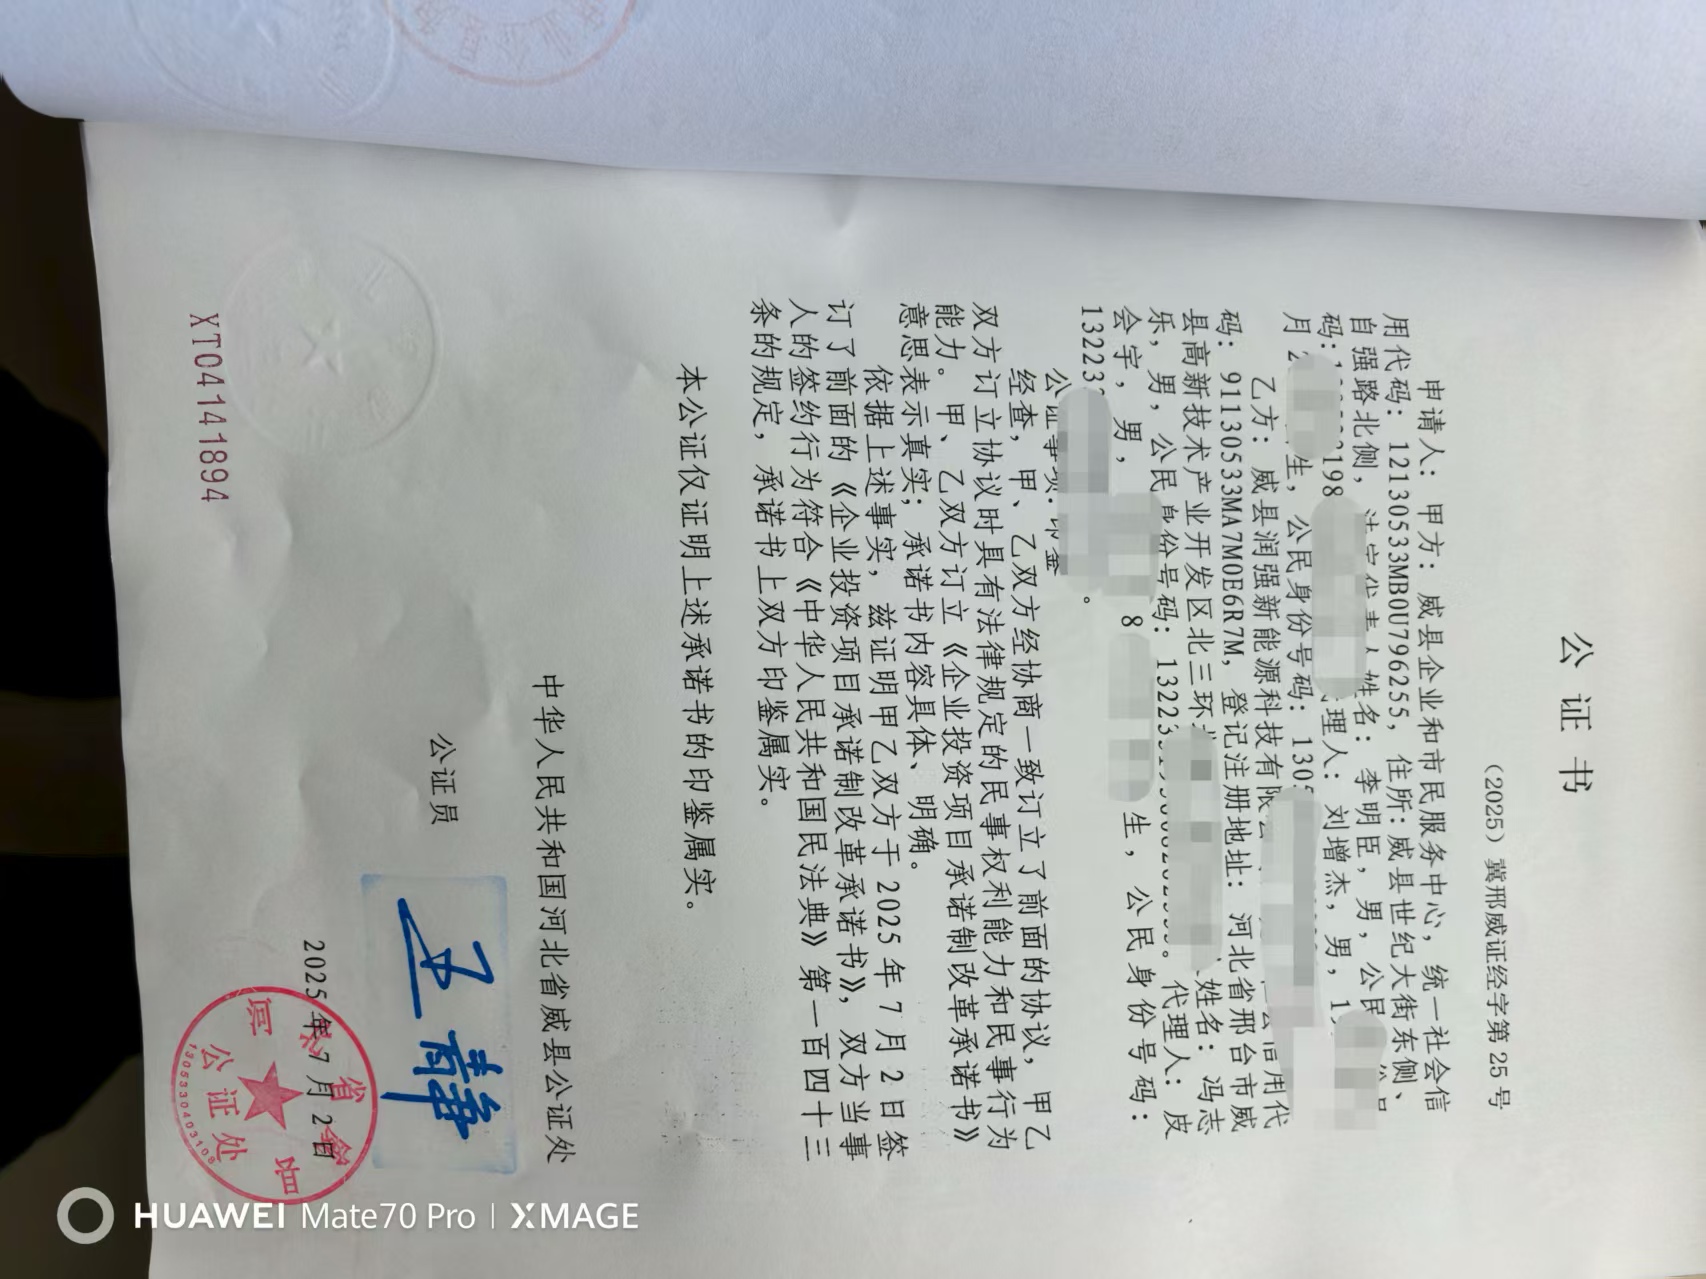 公 证 书
（2025）冀邢威证经字第 25 号
申请人：甲方：威县企业和市民服务中心，统一社会信
用代码：12130533MB0U796255，住所：威县世纪大街东侧、
自强路北侧，姓名：李明臣，男，公民
码：198 理人：刘增杰，男，1
月2 生，公民身份号码：1305
乙方：威县润强新能源科技有限 信用代
码：91130533MA7M0E6R7M，登记注册地址：河北省邢台市威
县高新技术产业开发区北三环 姓名：冯志
乐，男，公民身份号码：13223 。代理人：皮
会宇，男， 8 生，公民身份号码：
13223 。
公证事项：印鉴
经查，甲、乙双方经协商一致订立了前面的协议，甲乙
双方订立协议时具有法律规定的民事权利能力和民事行为
能力。甲、乙双方订立《企业投资项目承诺制改革承诺书》
意思表示真实；承诺书内容具体、明确。
依据上述事实，兹证明甲乙双方于 2025 年 7 月 2 日签
订了前面的《企业投资项目承诺制改革承诺书》，双方当事
人的签约行为符合《中华人民共和国民法典》第一百四十三
条的规定，承诺书上双方印鉴属实。
本公证仅证明上述承诺书的印鉴属实。
中华人民共和国河北省威县公证处
公证员
2025 年 7 月 2 日
省 县
公证处
1305330403108
XT04141894
HUAWEI Mate70 Pro | XMAGE